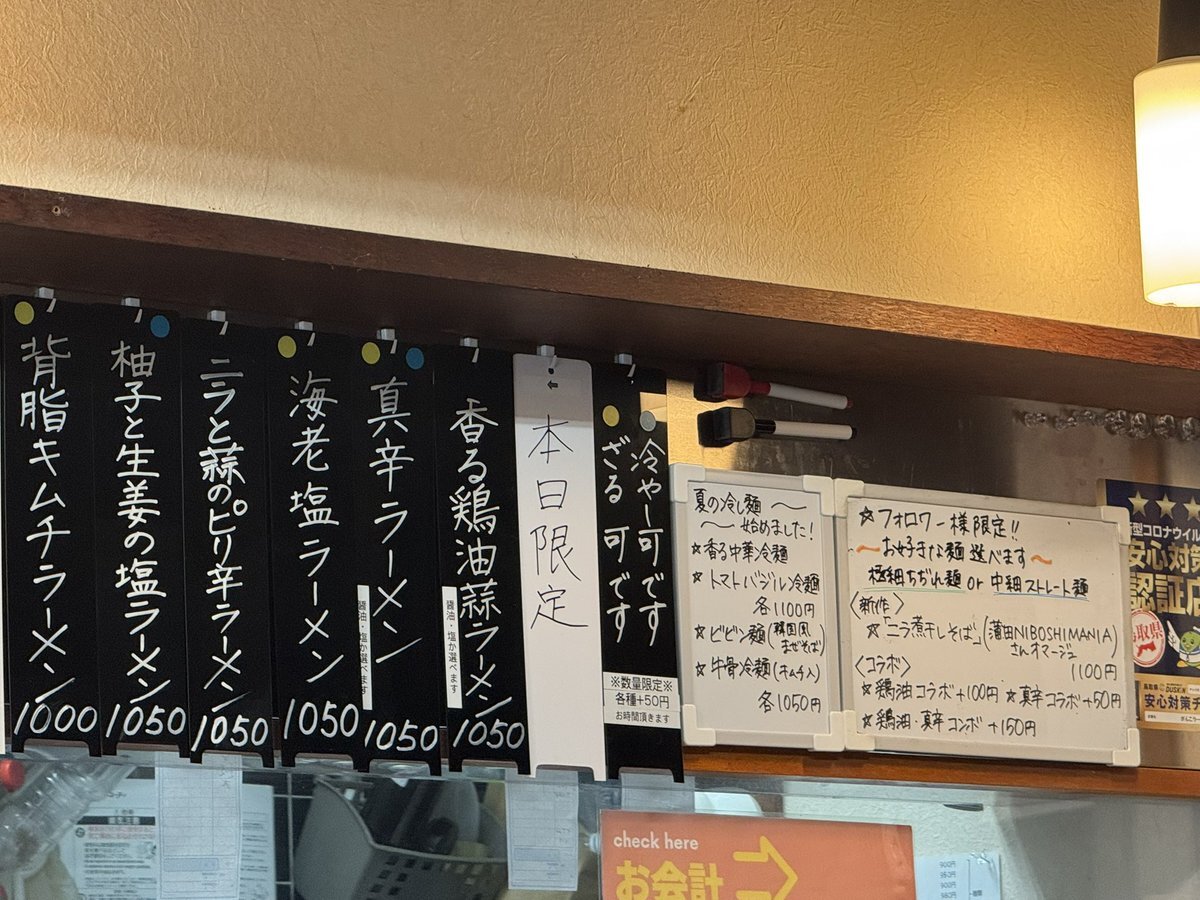 背脂キムチラーメン
1000
柚子と生姜の塩ラーメン
1050
ニラと蒜のピリ辛ラーメン
1050
海老塩ラーメン
1050
真辛ラーメン
醤油・塩か選べます
1050
香る鶏油蒜ラーメン
醤油・塩か選べます
1050
←
本日限定
冷やー可です
ざる可です
※数量限定※
各種+50円
お時間頂きます
夏の冷し麺〜
〜始めました!
★香る中華冷麺
★トマトバジル冷麺
各1100円
★ビビン麺(韓国風まぜそば)
★牛骨冷麺(キムチ入)
各1050円
☆フォロワー様限定!!
〜お好きな麺選べます〜
極細ちぢれ麺 or 中細ストレート麺
〈新作〉
★「ニラ煮干しそば」(蒲田NIBOSHIMANIAさんオマージュ)
1100円
〈コラボ〉
★鶏油コラボ+100円 ★真辛コラボ+50円
★鶏油・真辛コンボ +150円
新型コロナウイル
安心対策
認証店
鳥取県
DUSKIN
安心対策チ
check here
お会計
900円
950円
900円
950円